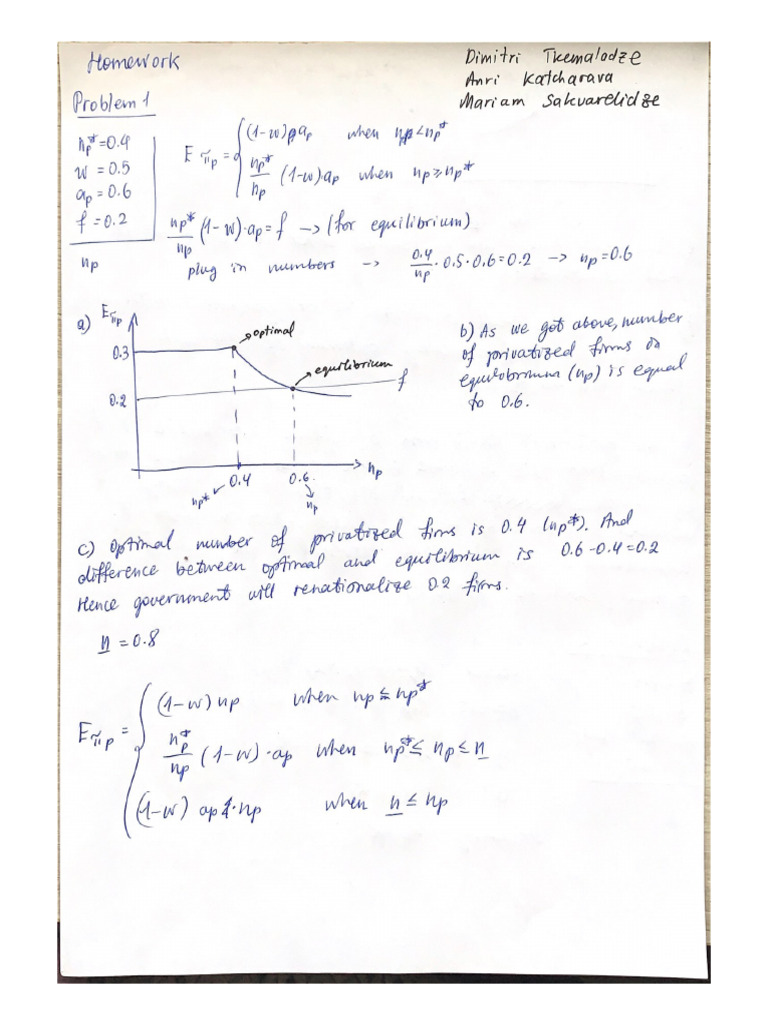 Homework
Dimitri Tkemaladze
Anri Katcharava
Mariam Sakvarelidze
Problem 1
np*=0.4
w = 0.5
ap = 0.6
f = 0.2
np
Eπp = { (1-w) ap when np<np*
np*/np (1-w) ap when np≥np*
np*/np (1-w)·ap = f -> (for equilibrium)
plug in numbers -> 0.4/np · 0.5 · 0.6 = 0.2 -> np = 0.6
a) Eπp
0.3
0.2
optimal
equilibrium
f
np
0.4
0.6
np*
np
b) As we got above, number
of privatized firms in
equilibrium (np) is equal
to 0.6.
c) Optimal number of privatized firms is 0.4 (np*). And
difference between optimal and equilibrium is 0.6-0.4=0.2
Hence government will renationalize 0.2 firms.
n = 0.8
Eπp = { (1-w) np when np ≤ np*
np*/np (1-w)·ap when np* ≤ np ≤ n
(1-w) ap·np when n ≤ np